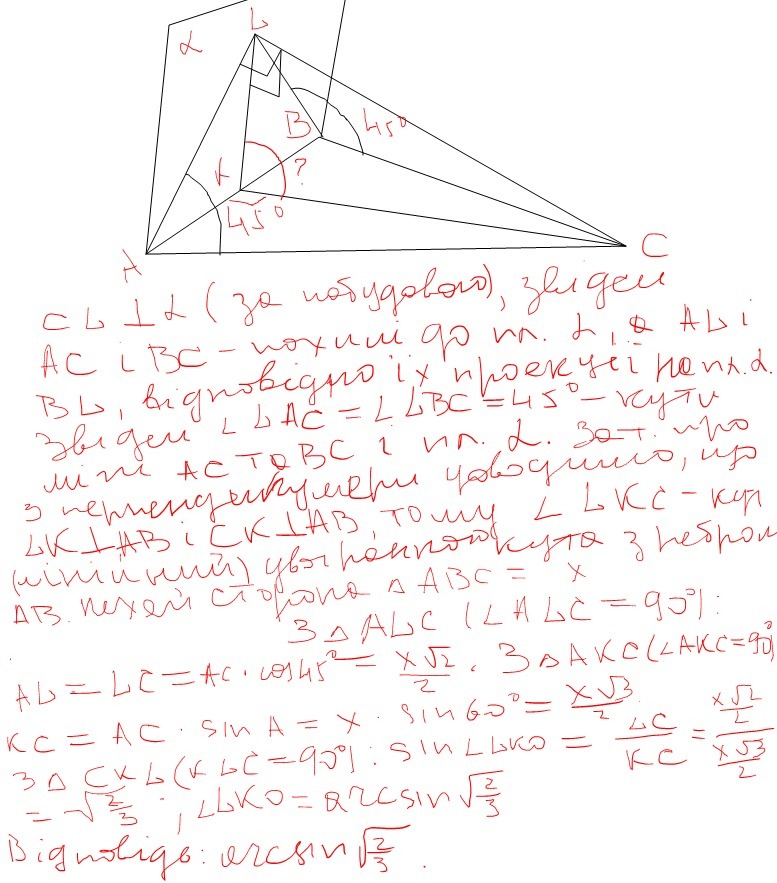 α
L
B
45°
K
?
45°
A
C
CL ⊥ α (за побудовою), звідси
AC і BC – похилі до пл. α, а AL і
BL, відповідно їх проекції на пл. α.
Звідси ∠LAC = ∠LBC = 45° – кути
між AC та BC і пл. α. За т. про
3 перпендикуляри доводимо, що
LK⊥AB і CK⊥AB, тому ∠LKC – кут
(лінійний) двогранного кута з ребром
AB. Нехай сторона △ABC = x
З △ALC (∠ALC = 90°):
AL = LC = AC · cos45° = x√2/2. З △AKC (∠AKC = 90°)
KC = AC · sin A = x · sin60° = x√3/2.
З △CKL (KLC = 90°): sin∠LKO = LC/KC = (x√2/2)/(x√3/2)
= √(2/3); ∠LKO = arcsin√(2/3)
Відповідь: arcsin√(2/3).